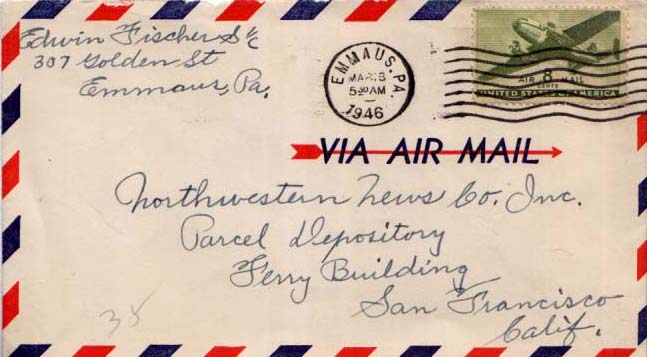 Edwin Fischer S 1/C
307 Golden St
Emmaus, Pa.
EMMAUS, PA.
MAR 8
5 30 AM
1946
AIR 8 MAIL
CENTS
UNITED STATES OF AMERICA
VIA AIR MAIL
Northwestern News Co. Inc.
Parcel Depository
Ferry Building
San Francisco
Calif.
38